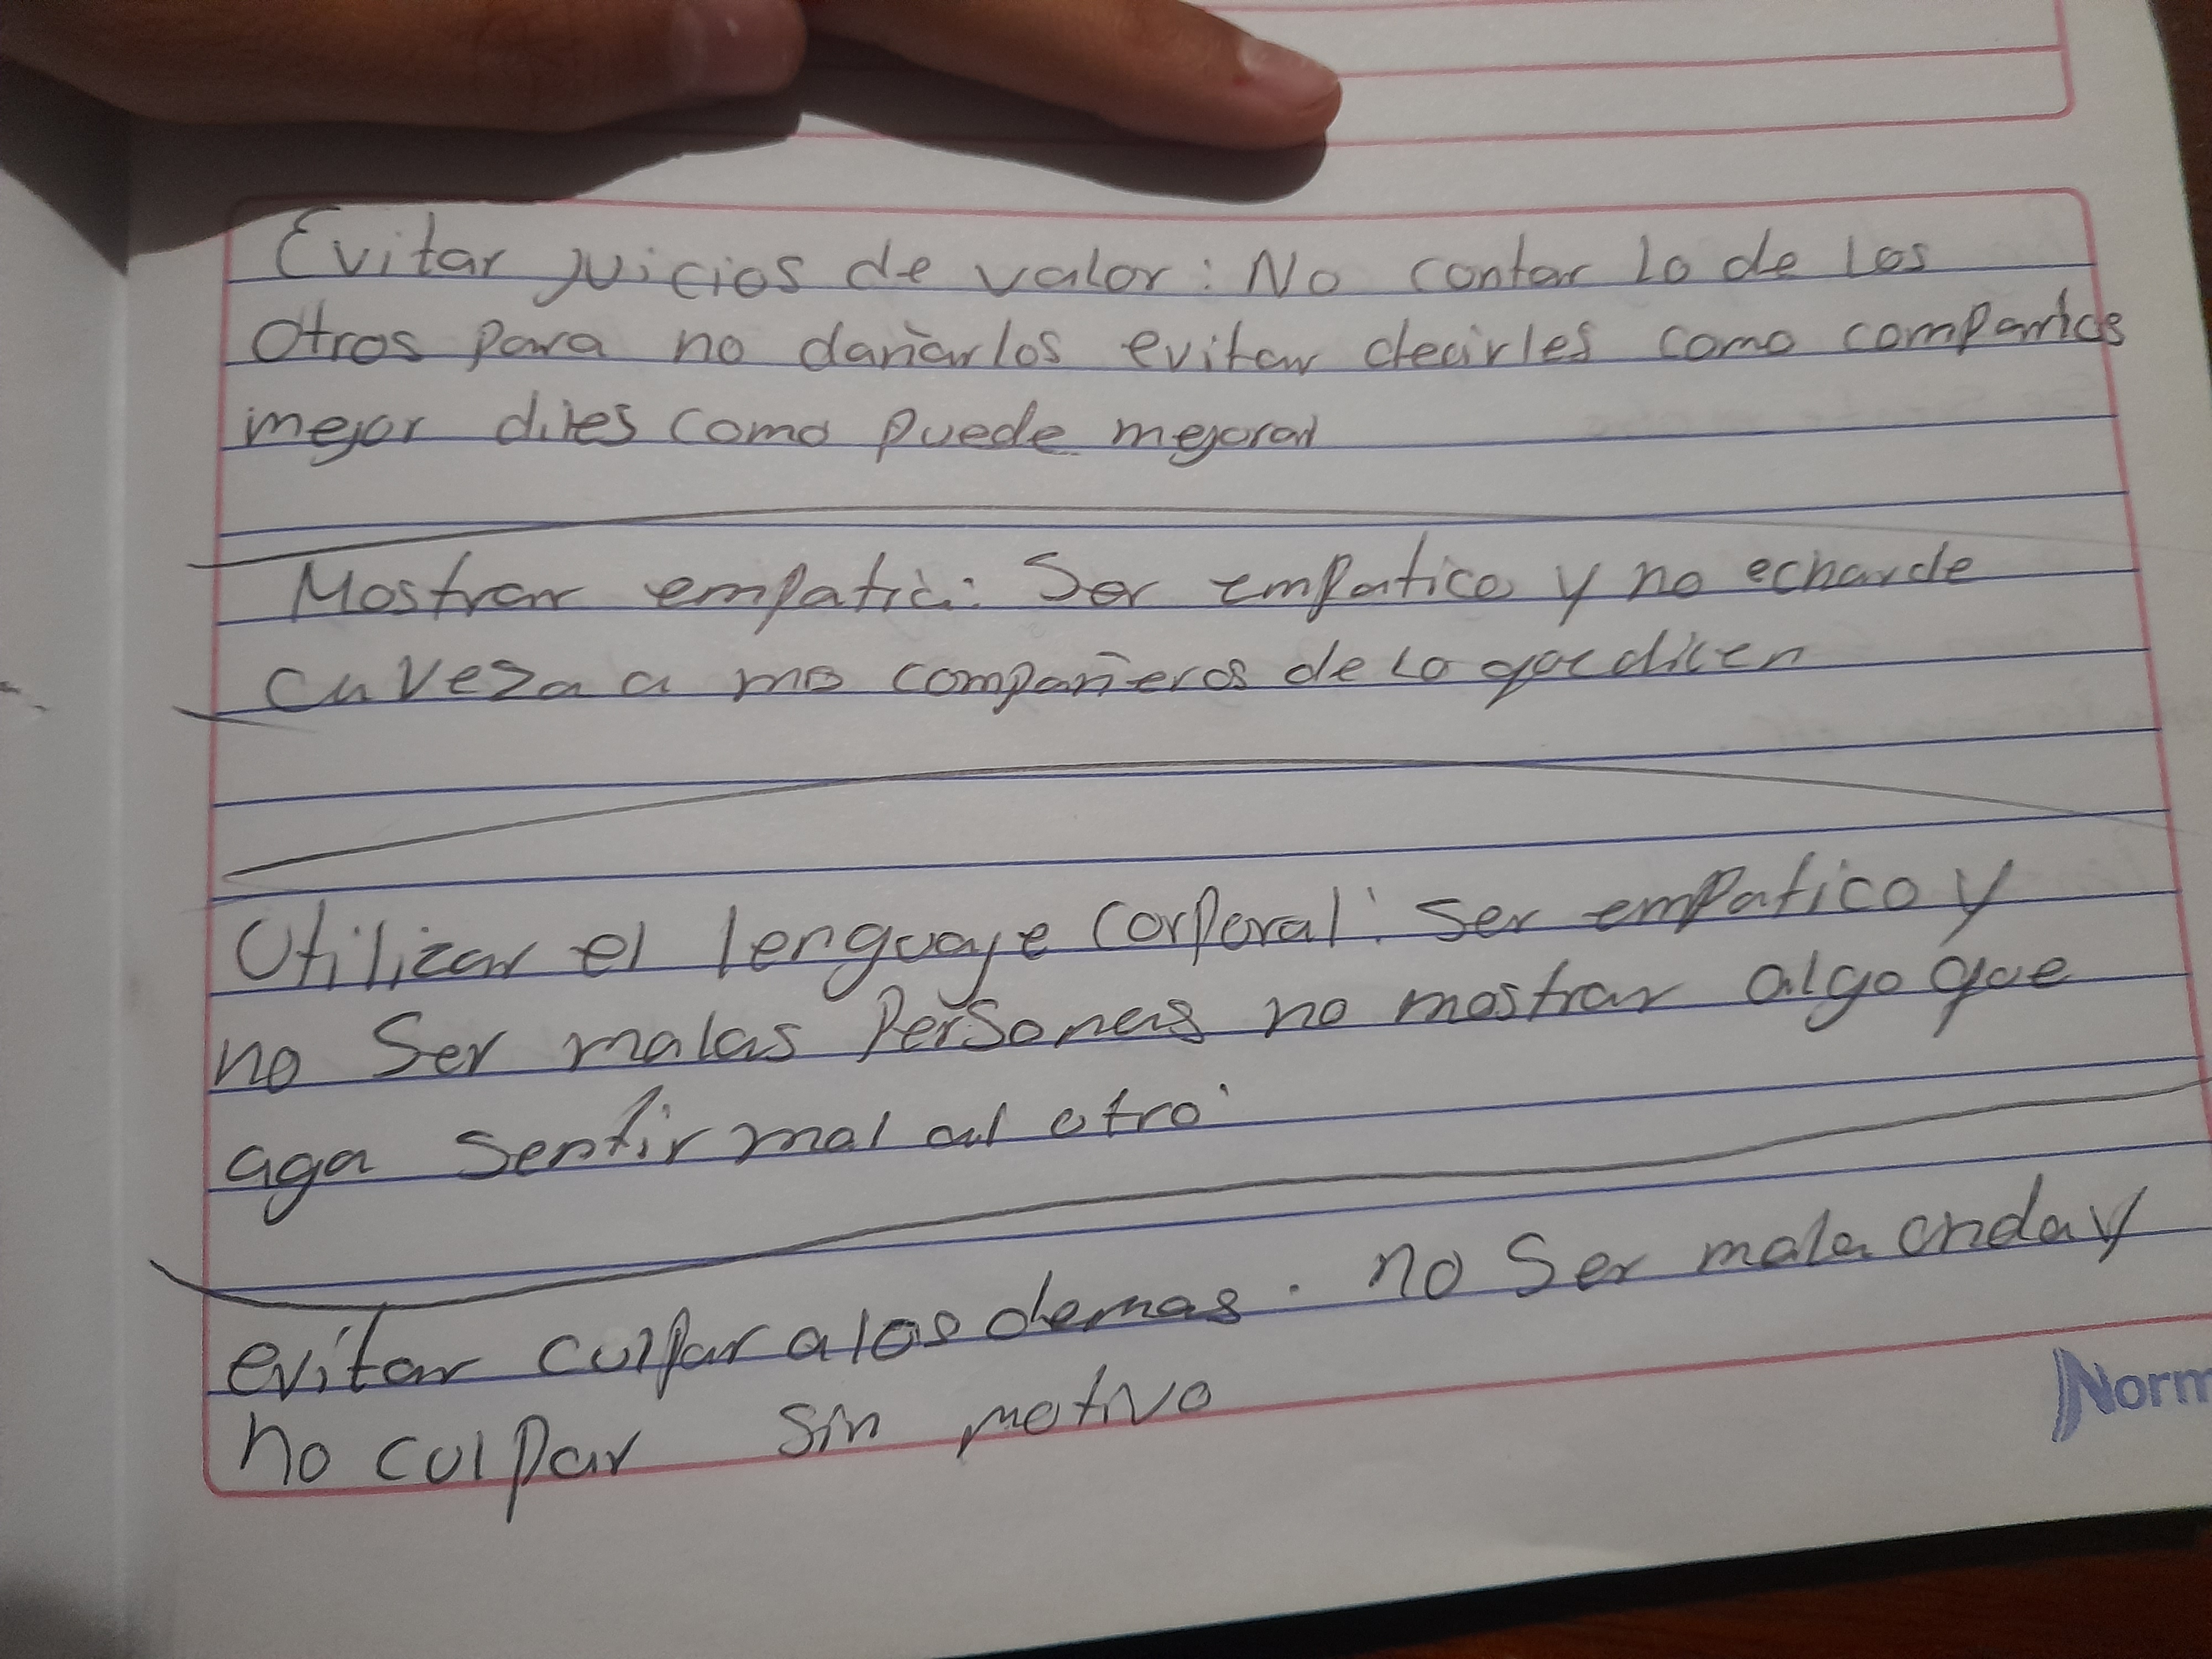 Evitar juicios de valor: No contar lo de los
Otros para no dañarlos evitar decirles como
mejor diles como puede mejorar
Mostrar empatia: Ser empatico y no echarde
caveza a mis compañeros de lo que dicen
Utilizar el lenguaje corporal: ser empatico y
no ser malas personas no mostrar algo que
aga sentir mal al otro
evitar culpar a los demas. no ser mala onda y
no culpar sin motivo
Norm